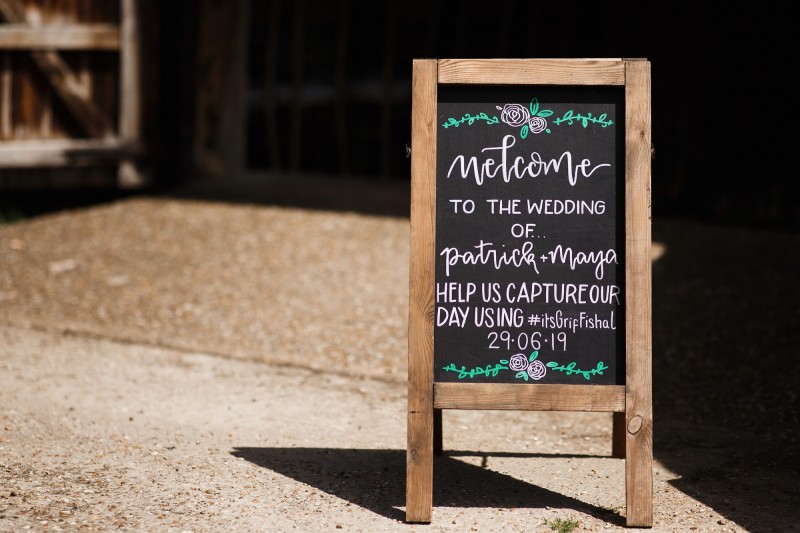 welcome
TO THE WEDDING
OF...
patrick + maya
HELP US CAPTURE OUR
DAY USING #itsGrifFishal
29·06·19